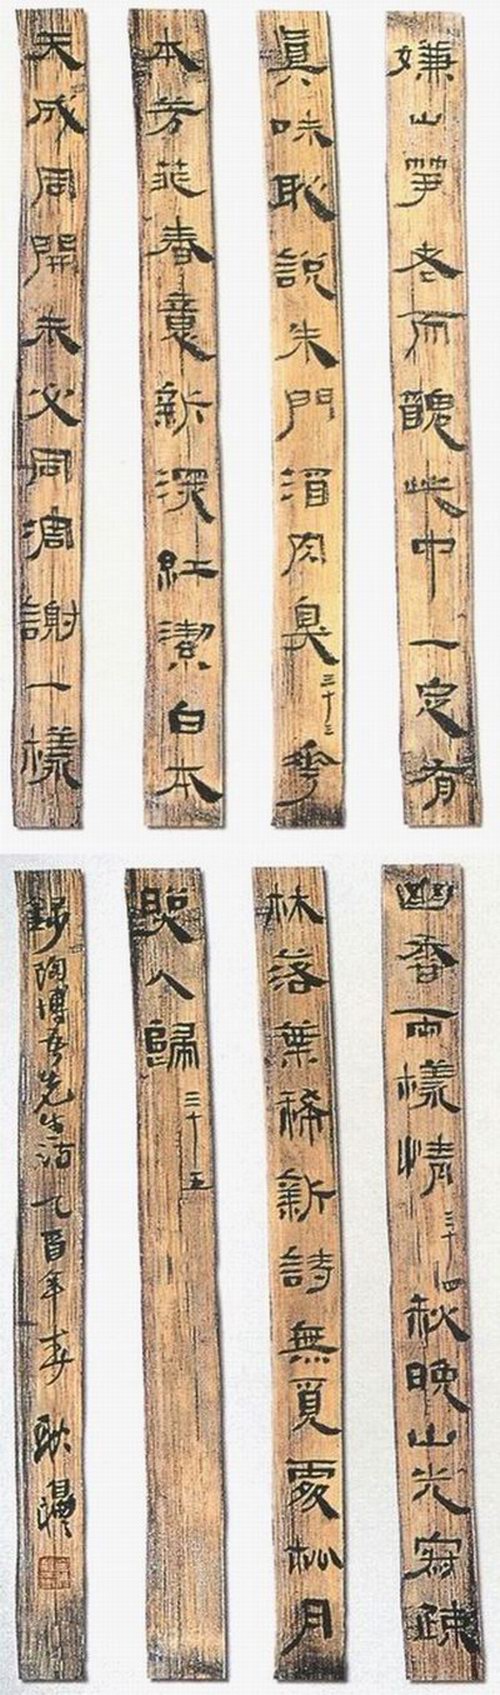 嫌山笋老而醜此中一定有
眞味恥說朱門酒肉臭三十三華
本芳菲春意新深紅潔白本
天成同開未必同凋謝一樣
幽香兩樣情三十四秋晚山光寂疎
林落葉稀新詩無覓處松月
照人歸三十五
錄陶博吾先生詩乙酉年春耿